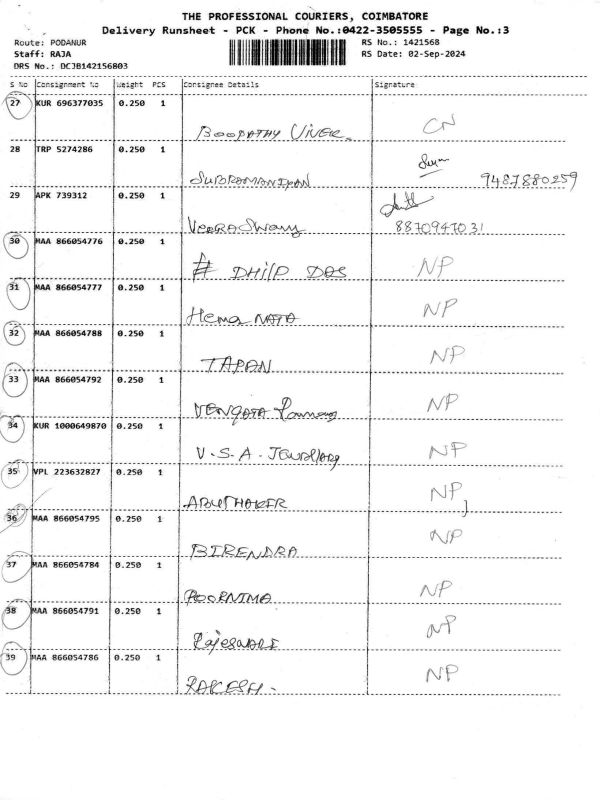 THE PROFESSIONAL COURIERS, COIMBATORE
Delivery Runsheet - PCK - Phone No.:0422-3505555 - Page No.:3
Route: PODANUR RS No.: 1421568
Staff: RAJA RS Date: 02-Sep-2024
DRS No.: DCJB142156803
S No Consignment No Weight PCS Consignee Details Signature
27 KUR 696377035 0.250 1
Boopathy CN
28 TRP 5274286 0.250 1
SUBRAMANIYAN 9487880259
29 APK 739312 0.250 1
VeeraSwamy 8870947031
30 MAA 866054776 0.250 1
# DHilP DAS NP
31 MAA 866054777 0.250 1
Hema NATA NP
32 MAA 866054788 0.250 1
TAPAN NP
33 MAA 866054792 0.250 1
VENGATA NP
34 KUR 1000649870 0.250 1
V.S.A. NP
35 VPL 223632827 0.250 1
NP
36 MAA 866054795 0.250 1
BIRENDRA NP
37 MAA 866054784 0.250 1
POORNIMA NP
38 MAA 866054791 0.250 1
RajeswARI NP
39 MAA 866054786 0.250 1
RAKESH. NP